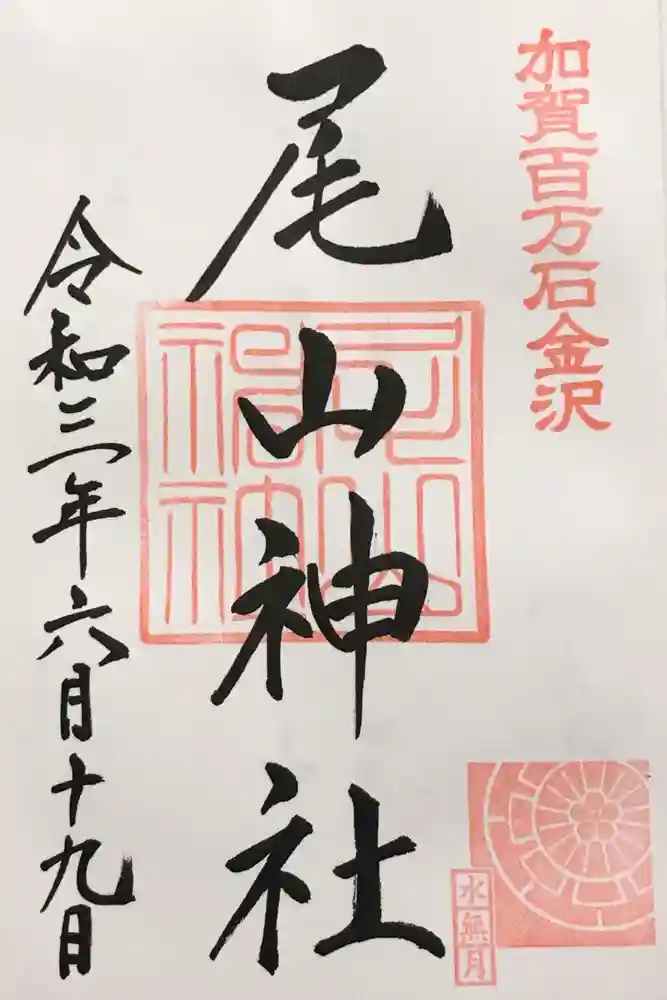 加賀百万石金沢
尾山神社
令和三年六月十九日
水無月